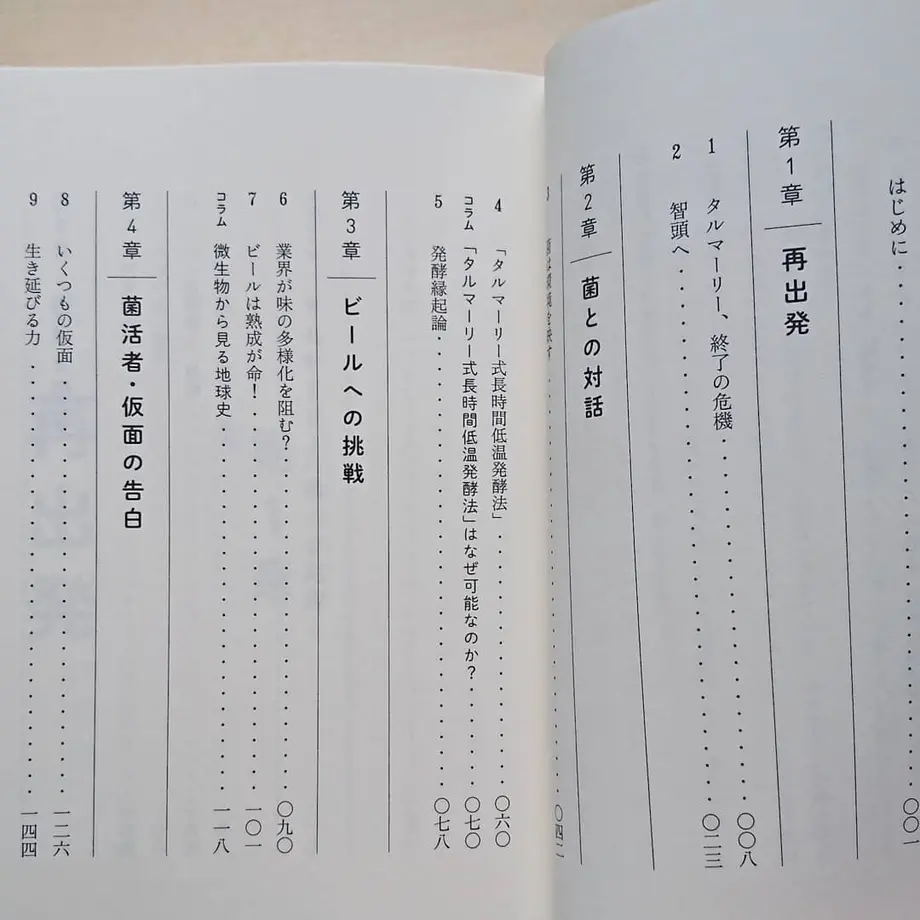 はじめに . . . . . 〇〇一
第1章 再出発
1 タルマーリー、終了の危機 . . . . . 〇〇八
2 智頭へ . . . . . 〇二三
第2章 菌との対話
3 菌は環境を映す . . . . . 〇四二
4 「タルマーリー式長時間低温発酵法」 . . . . . 〇六〇
コラム 「タルマーリー式長時間低温発酵法」はなぜ可能なのか? . . . . . 〇七〇
5 発酵縁起論 . . . . . 〇七八
第3章 ビールへの挑戦
6 業界が味の多様化を阻む? . . . . . 〇九〇
7 ビールは熟成が命! . . . . . 一〇一
コラム 微生物から見る地球史 . . . . . 一一八
第4章 菌活者・仮面の告白
8 いくつもの仮面 . . . . . 一二六
9 生き延びる力 . . . . . 一四四